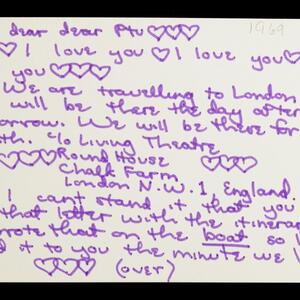 1969
dear dear Ptu ♡♡♡
♡ I love you ♡ I love you ♡
you ♡♡♡
We are travelling to London
will be there the day after
orrow. We will be there for
th. c/o Living Theatre
♡♡♡ Round House ♡♡♡
Chalk Farm
London N.W. 1 England.
I cant stand it that you
that letter with the itinerar
rote that on the boat so
d it to you the minute we
♡♡♡ (over)